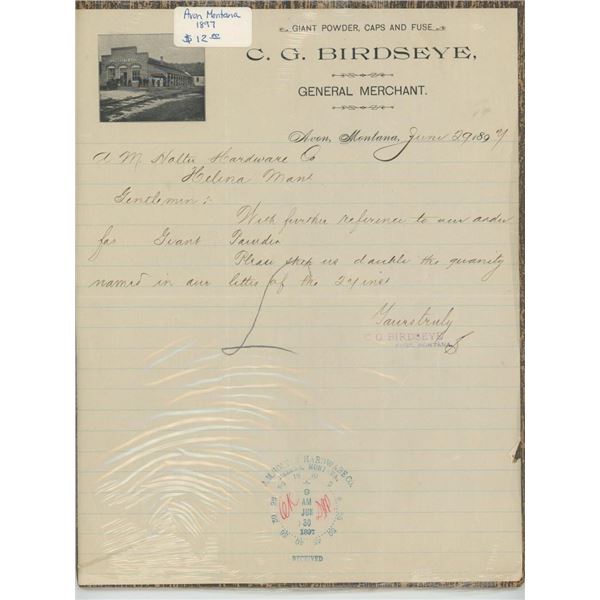 Avon Montana
1897
$12.00
GIANT POWDER, CAPS AND FUSE
C. G. BIRDSEYE,
GENERAL MERCHANT.
Avon, Montana, June 29 1897
A M Holter Hardware Co
Helena Mont
Gentlemen:
With further reference to our order
for Giant Powder
Please ship us double the quanity
named in our letter of the 24 inst
Yours truly
C. G. BIRDSEYE
AVON, MONTANA
A. M. HOLTER HARDWARE CO.
HELENA, MONTANA.
9
AM
JUN
30
1897
RECEIVED
OK